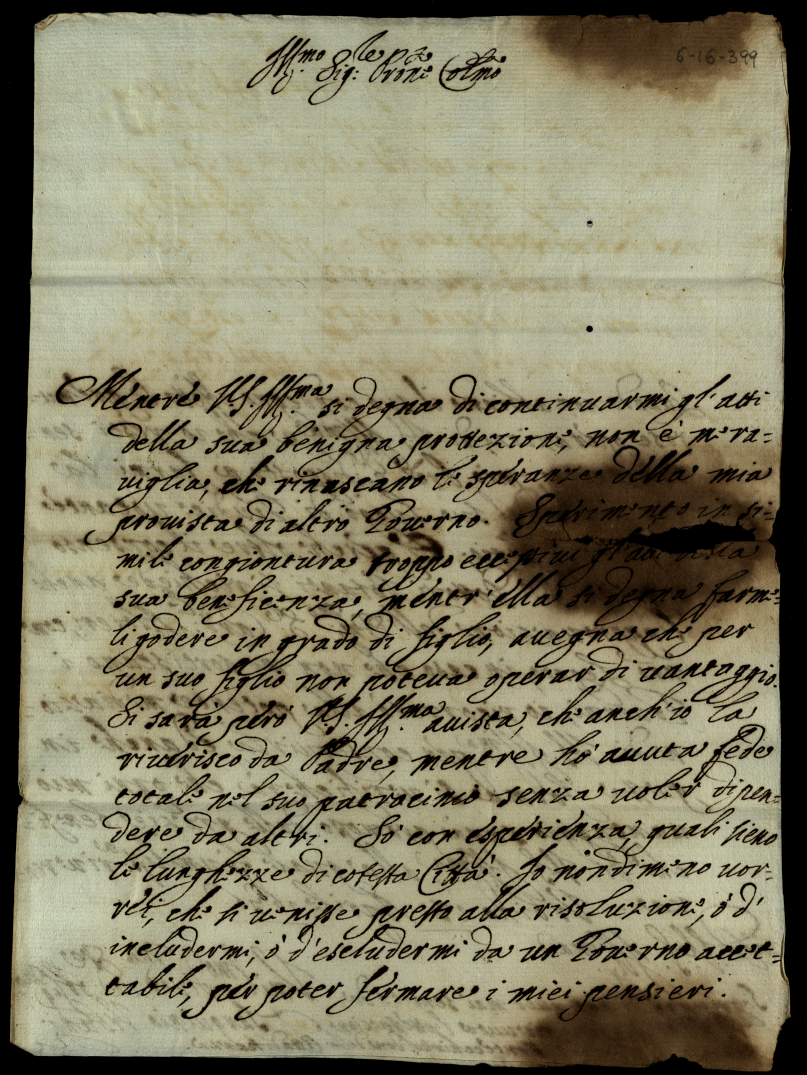 Ill.mo Sig.re Pron.e Col.mo
6-16-399
Mentre V.S. Ill.ma si degna di continuarmi gl'atti
della sua benigna protezione, non è mera=
viglia, che rinascano le speranze della mia
provista di altro Governo. Sperimento in si=
mile congiontura troppo eccessivi gl'atti della
sua beneficenza, mentr'ella si degna farme=
li godere in grado di figlio, avegna che per
un suo figlio non poteva operar di vantaggio.
Si sarà però V.S. Ill.ma avista, che anch'io la
riverisco da Padre, mentre hò avuta fede
totale nel suo patrocinio senza voler dipen=
dere da altri. Sò con esperienza, quali sieno
le lunghezze di cotesta Città. Io nondimeno vor=
rei, che si venisse presto alla risoluzione, ò d'
includermi, ò d'escludermi da un Governo accet=
tabile, per poter fermare i miei pensieri.